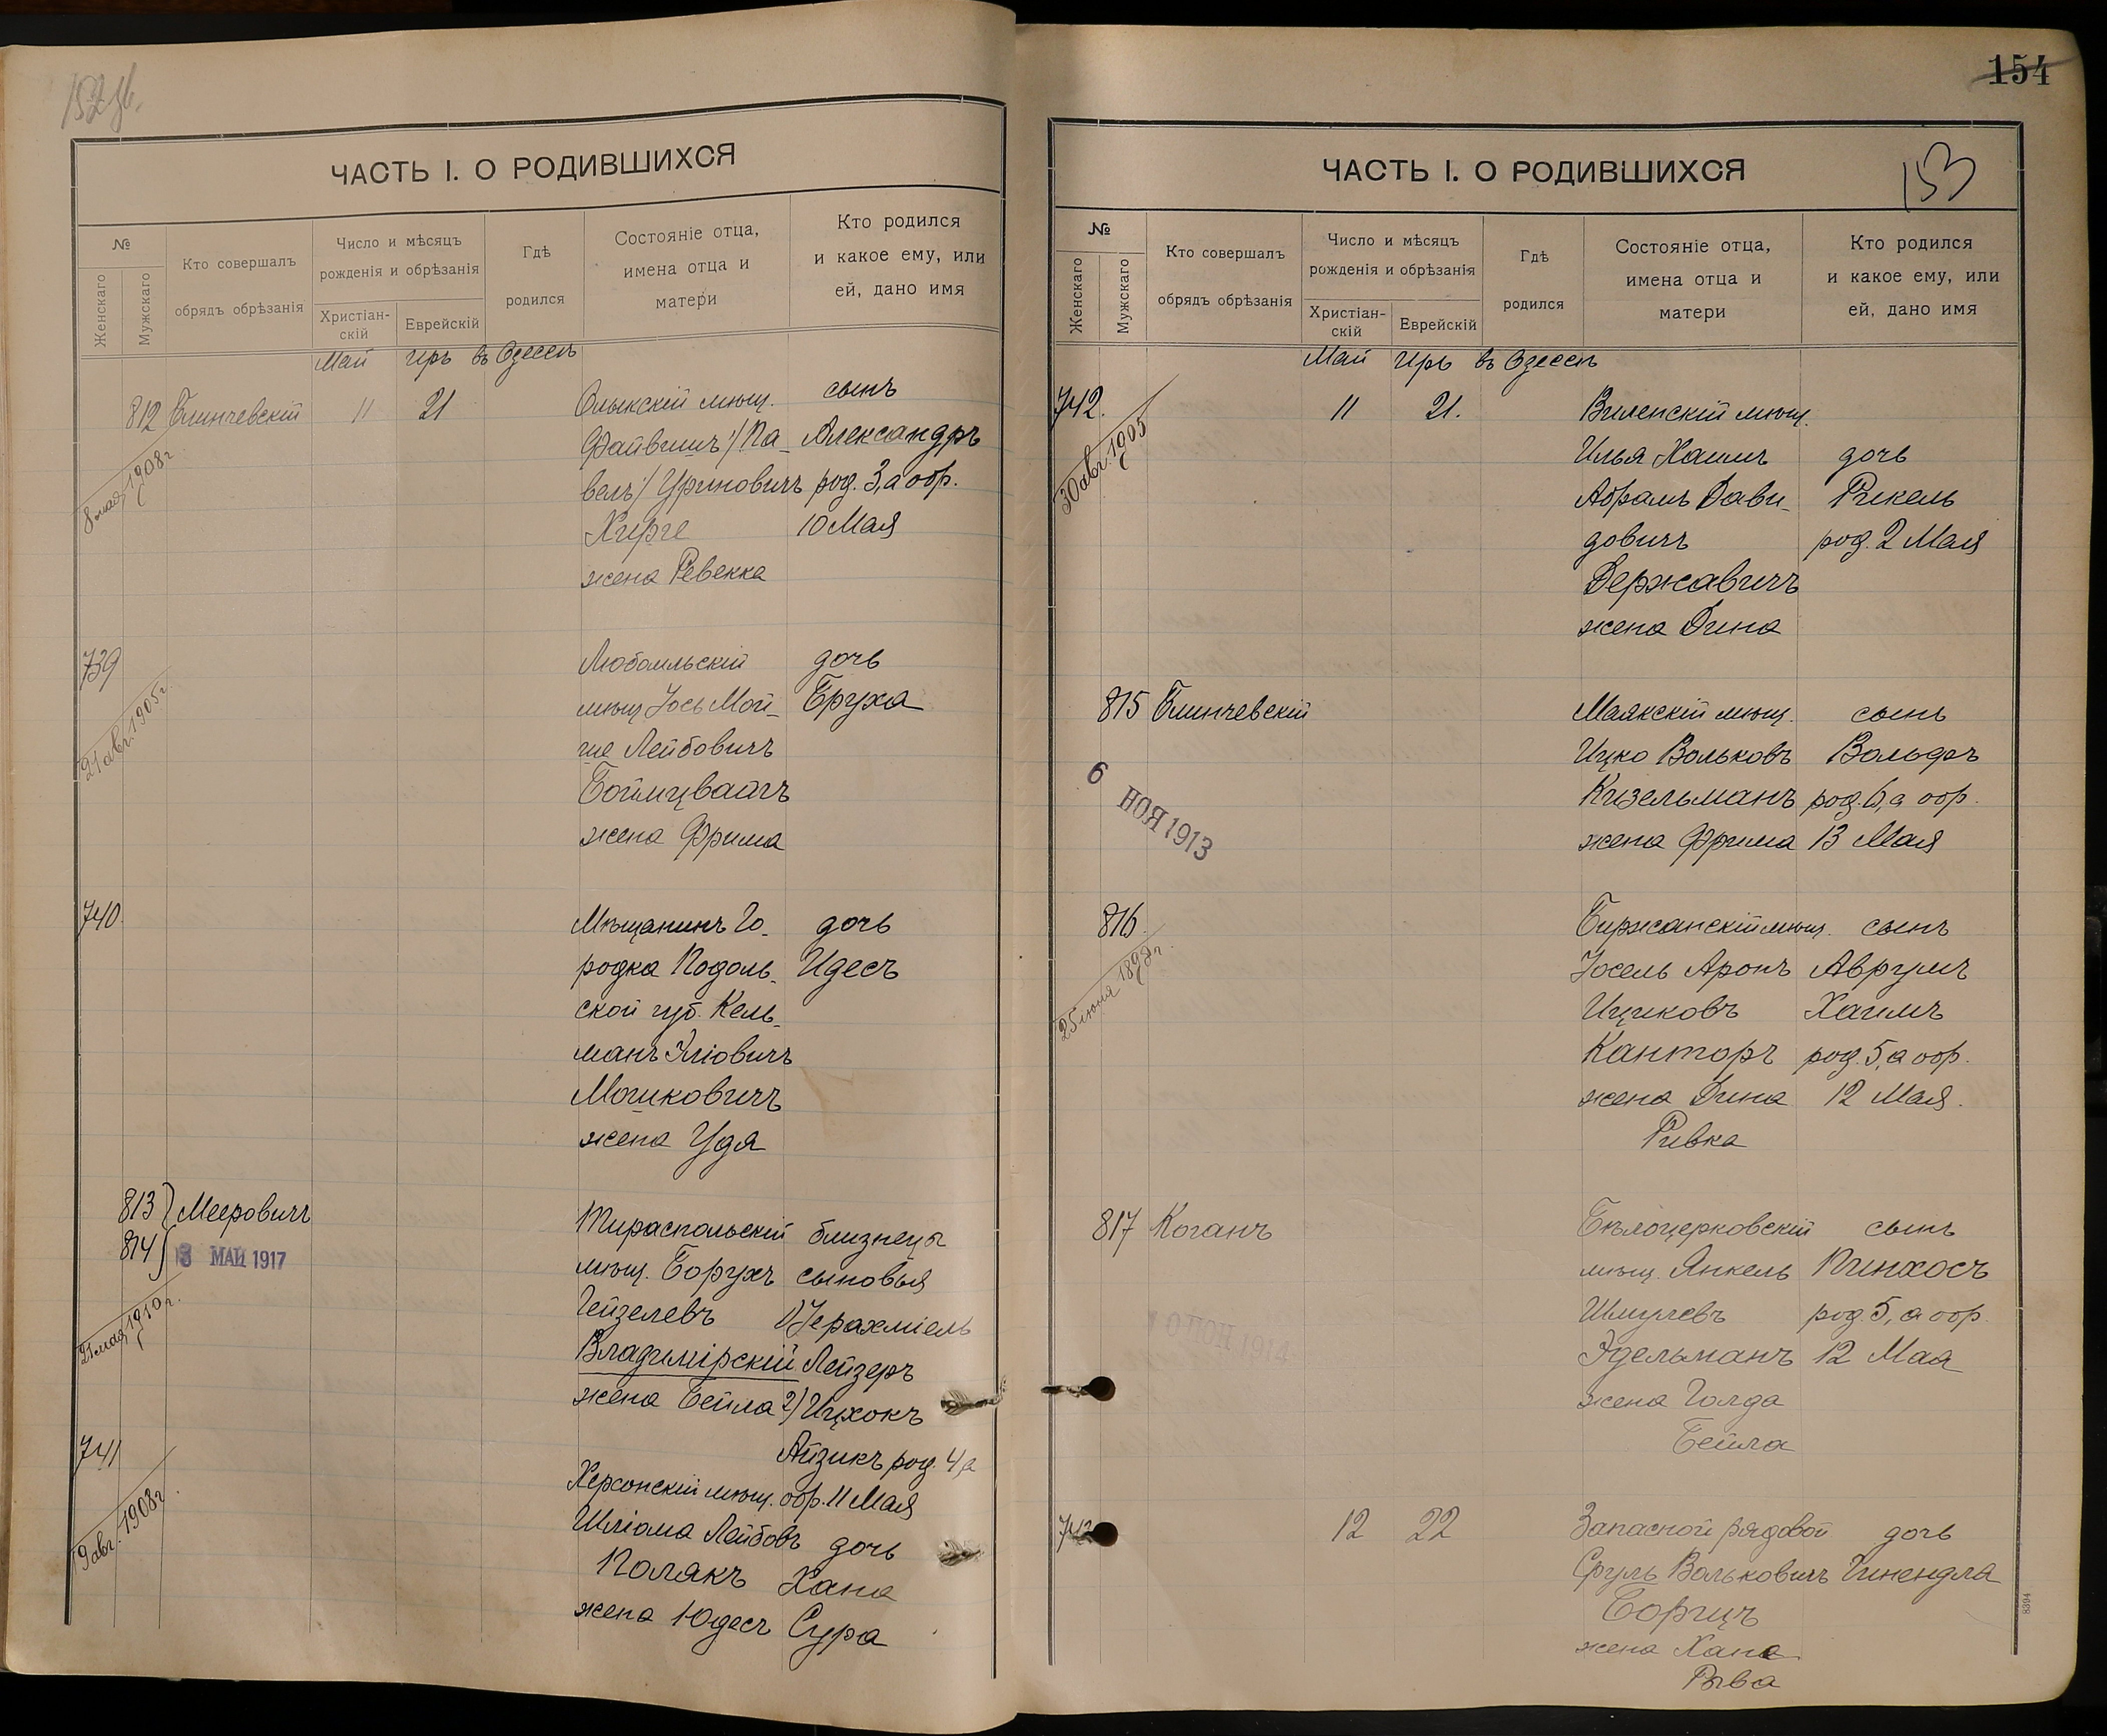 152 об.
ЧАСТЬ I. О РОДИВШИХСЯ
№
Женскаго
Мужскаго
Кто совершалъ
обрядъ обрѣзанія
Число и мѣсяцъ
рожденія и обрѣзанія
Христіан-
скій
Еврейскій
Гдѣ
родился
Состояніе отца,
имена отца и
матери
Кто родился
и какое ему, или
ей, дано имя
Май Иръ въ Одессѣ
812 Блинчевскій 11 21 Олыкскій мѣщ. сынъ
8 мая 1908 г.
Файвишъ /Па- Александръ
велъ/ Уриновичъ род. 3, а обр.
Хирге 10 Мая
жена Ревекка
739 Любомльскій дочь
21 авг. 1905 г.
мѣщ Іось Мой- Бруха
ше Лейбовичъ
Боймцвайгъ
жена Фрима
740. Мѣщанинъ Го- дочь
родка Подоль- Идесъ
ской губ. Кель-
манъ Эліовичъ
Мошковичъ
жена Удя
813 Мееровичъ Тираспольскій близнецы
814 13 МАЙ 1917
21 мая 1910 г.
мѣщ. Борухъ сыновья
Гейзелевъ 1) Іерахміель
Владимірскій Лейзеръ
жена Бейла 2) Ицхокъ
Айзикъ род. 4, а
741 Херсонскій мѣщ. обр. 11 Мая
19 авг. 1908 г.
Шліома Лейбовъ дочь
Полякъ Хана
жена Юдесъ Сура
154
153
ЧАСТЬ I. О РОДИВШИХСЯ
№
Женскаго
Мужскаго
Кто совершалъ
обрядъ обрѣзанія
Число и мѣсяцъ
рожденія и обрѣзанія
Христіан-
скій
Еврейскій
Гдѣ
родился
Состояніе отца,
имена отца и
матери
Кто родился
и какое ему, или
ей, дано имя
Май Иръ въ Одессѣ
742. 11 21. Виленскій мѣщ.
30 авг. 1905
Илья Хаимъ дочь
Абрамъ Дави- Рикель
довичъ род. 2 Мая
Державичъ
жена Дина
815 Блинчевскій Маякскій мѣщ. сынъ
Ицко Вольковъ Вольфъ
6 НОЯ 1913
Кизельманъ род. 6, а обр.
жена Фрима 13 Мая
816. Биржанскій мѣщ. сынъ
25 іюня 1898 г.
Іосель Аронъ Аврумъ
Ицковъ Хаимъ
Канторъ род. 5, а обр.
жена Дина 12 Мая.
Ривка
817 Коганъ Бѣлоцерковскій сынъ
мѣщ. Янкель Пинхосъ
Шмулевъ род. 5, а обр.
1914
Эдельманъ 12 Мая
жена Голда
Бейла
743 12 22 Запасной рядовой дочь
Сруль Вольковичъ Гинендла
Боргцъ
жена Хана
Рыва
8394